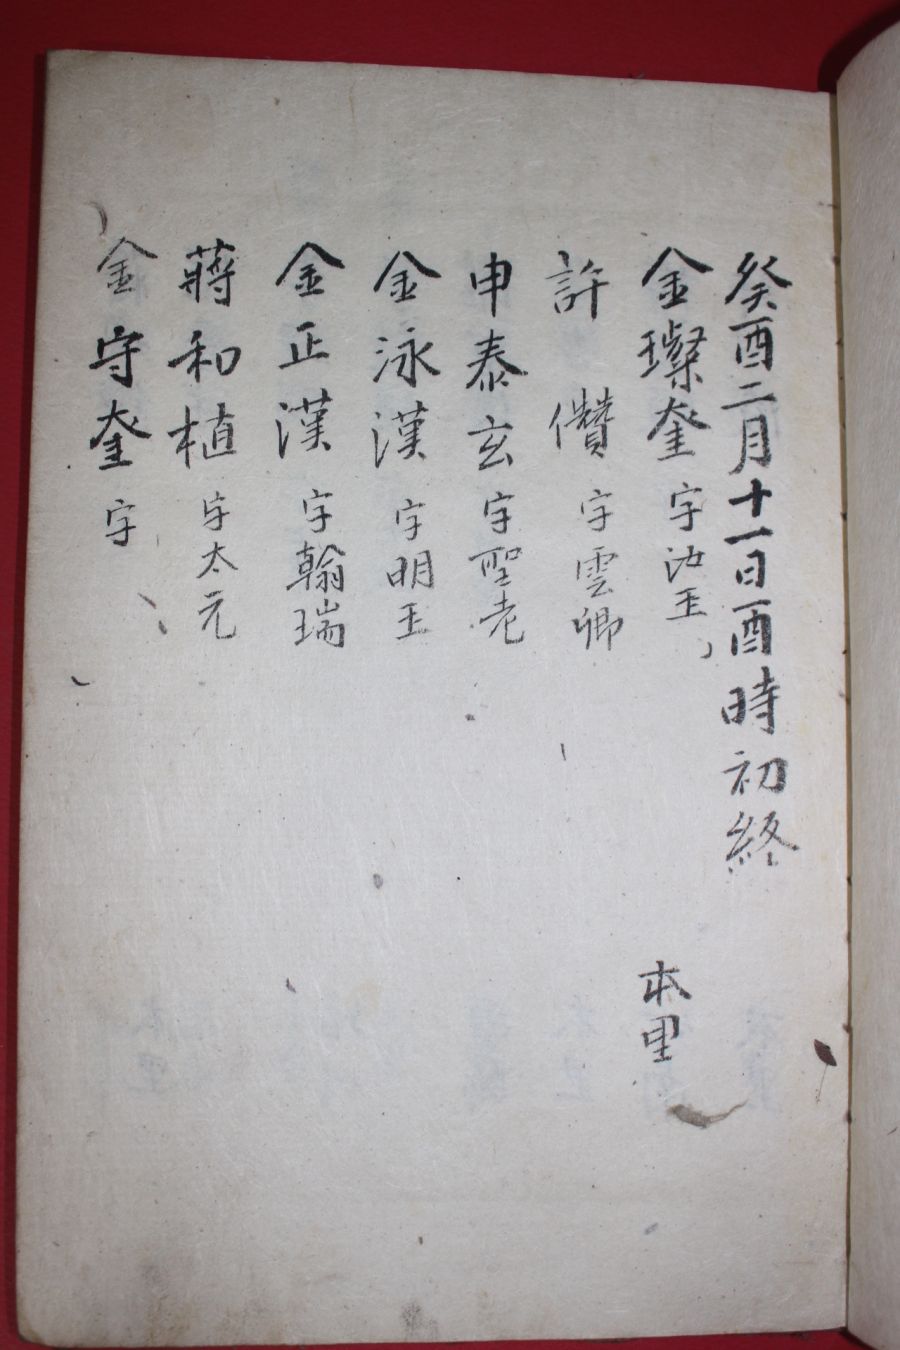 癸酉二月十一日酉時初終
金璨奎 字汝玉 本里
許 儹 字雲卿
申泰玄 字聖老
金泳漢 字明玉
金正漢 字翰瑞
蔣和植 字太元
金守奎 字